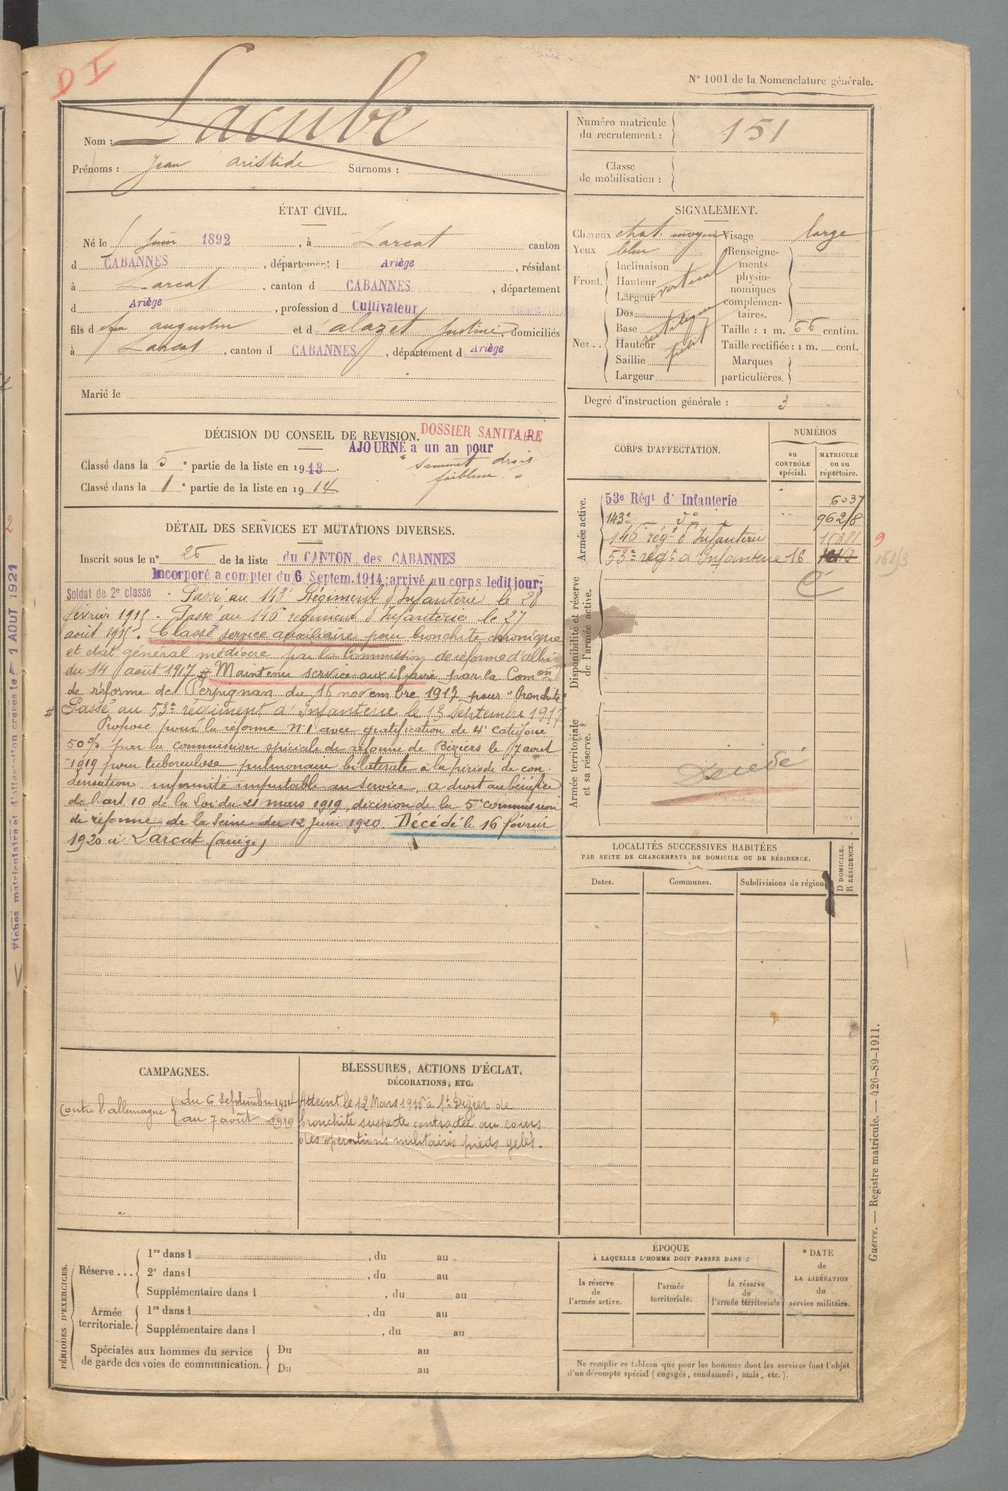 D I
N° 1001 de la Nomenclature générale.
Nom : Lacube
Prénoms : Jean aristide Surnoms :
Numéro matricule du recrutement : 151
Classe de mobilisation :
ÉTAT CIVIL.
Né le 1 juin 1892, à Larcat canton
d CABANNES, département d Ariège, résidant
à Larcat, canton d CABANNES, département
d Ariège, profession d Cultivateur
fils d Jean augustin et d alazet Justine, domiciliés
à Larcat, canton d CABANNES, département d Ariège
Marié le
SIGNALEMENT.
Cheveux chat. moyen Visage large
Yeux bleu
Front. Inclinaison vertical
Hauteur
Largeur
Nez.. Dos
Base
Hauteur
Saillie
Largeur
Renseignements physionomiques complémentaires.
Taille : 1 m. 66 centim.
Taille rectifiée : 1 m. cent.
Marques particulières.
Degré d'instruction générale : 3
DÉCISION DU CONSEIL DE REVISION. DOSSIER SANITAIRE
AJOURNÉ a un an pour
Classé dans la 5e partie de la liste en 1913. "Sommet droit
Classé dans la 1e partie de la liste en 1914 faiblesse"
CORPS D'AFFECTATION.
NUMÉROS
au CONTRÔLE spécial.
MATRICULE ou au répertoire.
Armée active.
53e Régt d'Infanterie 6037
143e do 962/8
146e régt d'Infanterie
53e régt d'Infanterie 16
Disponibilité et réserve de l'armée active.
Armée territoriale et sa réserve.
Décédé
DÉTAIL DES SERVICES ET MUTATIONS DIVERSES.
Inscrit sous le n° 26 de la liste du CANTON des CABANNES
Incorporé a compter du 6 Septem. 1914; arrivé au corps ledit jour;
Soldat de 2e classe. Passé au 143e Régiment d'Infanterie le 28
février 1915. Passé au 146e régiment d'Infanterie le 27
août 1915. Classé service auxiliaire pour bronchite chronique
et état général médiocre par la Commission de réforme d'albi
du 14 août 1917 # Maintenu service auxiliaire par la Comon
de réforme de Perpignan du 16 novembre 1917 pour "bronchite"
# Passé au 53e régiment d'Infanterie le 13 Septembre 1917
Proposé pour la réforme N° 1 avec gratification de 4e catégorie
50% par la commission spéciale de réforme de Béziers le 7 aout
1919 pour tuberculose pulmonaire bilatérale à la période de con
densation infirmité imputable au service, a droit au bénéfice
de l'art 10 de la Loi du 21 mars 1919, décision de la 5e commission
de réforme de la Seine du 12 Juin 1920 Décédé le 16 février
1920 à Larcat (ariège)
LOCALITÉS SUCCESSIVES HABITÉES
PAR SUITE DE CHANGEMENTS DE DOMICILE OU DE RÉSIDENCE.
Dates.
Communes.
Subdivisions de région
D DOMICILE. R RÉSIDENCE.
CAMPAGNES.
Contre l'allemagne
du 6 Septembre 1914
au 7 août 1919
BLESSURES, ACTIONS D'ÉCLAT,
DÉCORATIONS, ETC.
Atteint le 12 Mars 1915 à St Dizier de
bronchite suspecte contractée au cours
des opérations militaires pieds gelés.
PÉRIODES D'EXERCICES.
Réserve... 1re dans l , du au
2e dans l , du au
Supplémentaire dans l , du au
Armée territoriale. 1re dans l , du au
Supplémentaire dans l , du au
Spéciales aux hommes du service de garde des voies de communication. Du au
Du au
ÉPOQUE
À LAQUELLE L'HOMME DOIT PASSER DANS :
la réserve de l'armée active.
l'armée territoriale.
la réserve de l'armée territoriale
*DATE de LA LIBÉRATION du service militaire.
Ne remplir ce tableau que pour les hommes dont les services font l'objet
d'un décompte spécial (engagés, condamnés, omis, etc.).
Guerre. — Registre matricule. — 426-89-1911.